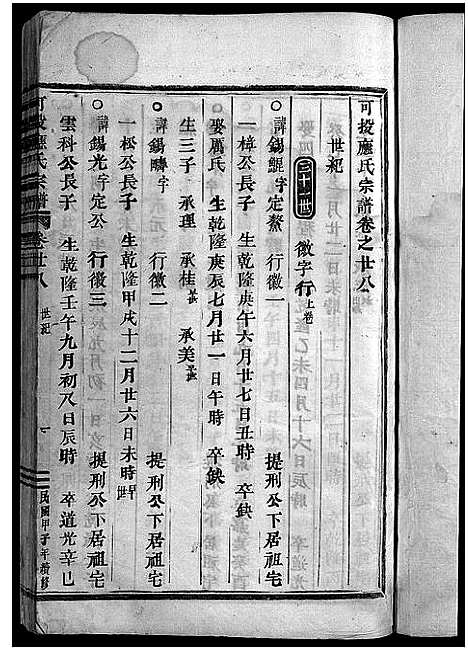 可投應氏宗譜卷之廿八
世紀
三十世 徽字行上卷
諱錫鯤字定鰲 行徽一 提刑公下居祖宅
一樟公長子 生乾隆庚午六月廿七日丑時 卒缺
娶盧氏 生乾隆庚辰七月廿一日午時 卒缺
生三子 承理 承桂 承美
諱錫疇字 行徽二 提刑公下居祖宅
一松公長子 生乾隆甲戌十二月廿六日未時
諱錫光字定公 行徽三 提刑公下居祖宅
雲科公長子 生乾隆壬午九月初八日辰時 卒道光辛巳
可投應氏宗譜 卷廿八 世紀 一 民國甲子年續修